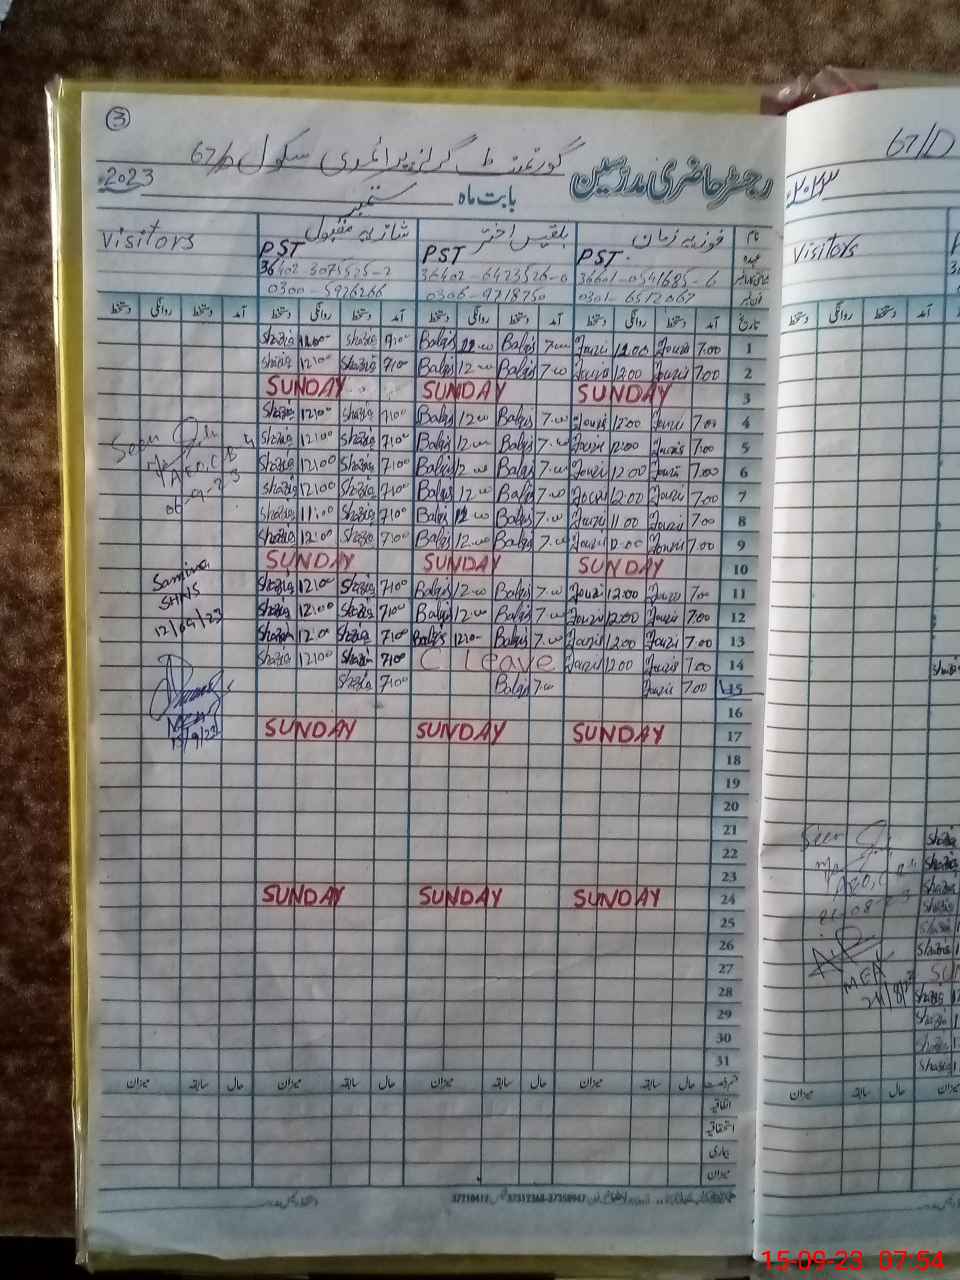 3
گورنمنٹ گرلز پرائمری سکول 67/D
رجسٹر حاضری مدرسین
بابت ماہ ستمبر 2023
نام فوزیہ زمان بلقیس اختر شازیہ مقبول Visitors
عہدہ PST PST PST
36601-0541685-6 36402-6423526-0 36402-3075525-2
0301-6512067 0306-9718750 0300-5926266
تاریخ آمد دستخط روانگی دستخط آمد دستخط روانگی دستخط آمد دستخط روانگی دستخط آمد دستخط روانگی دستخط
1 7.00 Fouzia 12.00 Fouzia 7.00 Balqis 12.00 Balqis 7:00 Shazia 12:00 Shazia
2 7.00 Fouzia 12.00 Fouzia 7.00 Balqis 12.00 Balqis 7:00 Shazia 12:00 Shazia
3 SUNDAY SUNDAY SUNDAY
4 7.00 Fouzia 12.00 Fouzia 7.00 Balqis 12.00 Balqis 7:00 Shazia 12:00 Shazia
5 7.00 Fouzia 12.00 Fouzia 7.00 Balqis 12.00 Balqis 7:00 Shazia 12:00 Shazia
6 7.00 Fouzia 12.00 Fouzia 7.00 Balqis 12.00 Balqis 7:00 Shazia 12:00 Shazia
7 7.00 Fouzia 12.00 Fouzia 7.00 Balqis 12.00 Balqis 7:00 Shazia 12:00 Shazia
8 7.00 Fouzia 11.00 Fouzia 7.00 Balqis 12.00 Balqis 7:00 Shazia 11:00 Shazia
9 7.00 Fouzia 12.00 Fouzia 7.00 Balqis 12.00 Balqis 7:00 Shazia 12:00 Shazia
10 SUNDAY SUNDAY SUNDAY
11 7.00 Fouzia 12.00 Fouzia 7.00 Balqis 12.00 Balqis 7:00 Shazia 12:00 Shazia
12 7.00 Fouzia 12.00 Fouzia 7.00 Balqis 12.00 Balqis 7:00 Shazia 12:00 Shazia
13 7.00 Fouzia 12.00 Fouzia 7.00 Balqis 12:00 Balqis 7:00 Shazia 12:00 Shazia
14 7.00 Fouzia 12.00 Fouzia C Leave 7:00 Shazia 12:00 Shazia
15 7.00 Fouzia 7.00 Balqis 7:00 Shazia
16
17 SUNDAY SUNDAY SUNDAY
18
19
20
21
22
23
24 SUNDAY SUNDAY SUNDAY
25
26
27
28
29
30
31
Seen
06-9-23
Samina
SHNS
12/09/23
MEA
15/9/23
حال سابقہ میزان حال سابقہ میزان حال سابقہ میزان حال سابقہ میزان
اتفاقیہ
استحقاقیہ
بیماری
میزان
67/D
۲۰۲۳
Visitors
دستخط روانگی دستخط آمد
Shazia
Seen
21-08-23
MEA
Shazia
Shazia
Shazia
Shazia
Shazia
Shazia
Shazia
Shazia
Shazia
Shazia
میزان سابقہ حال
15-09-23 07:54